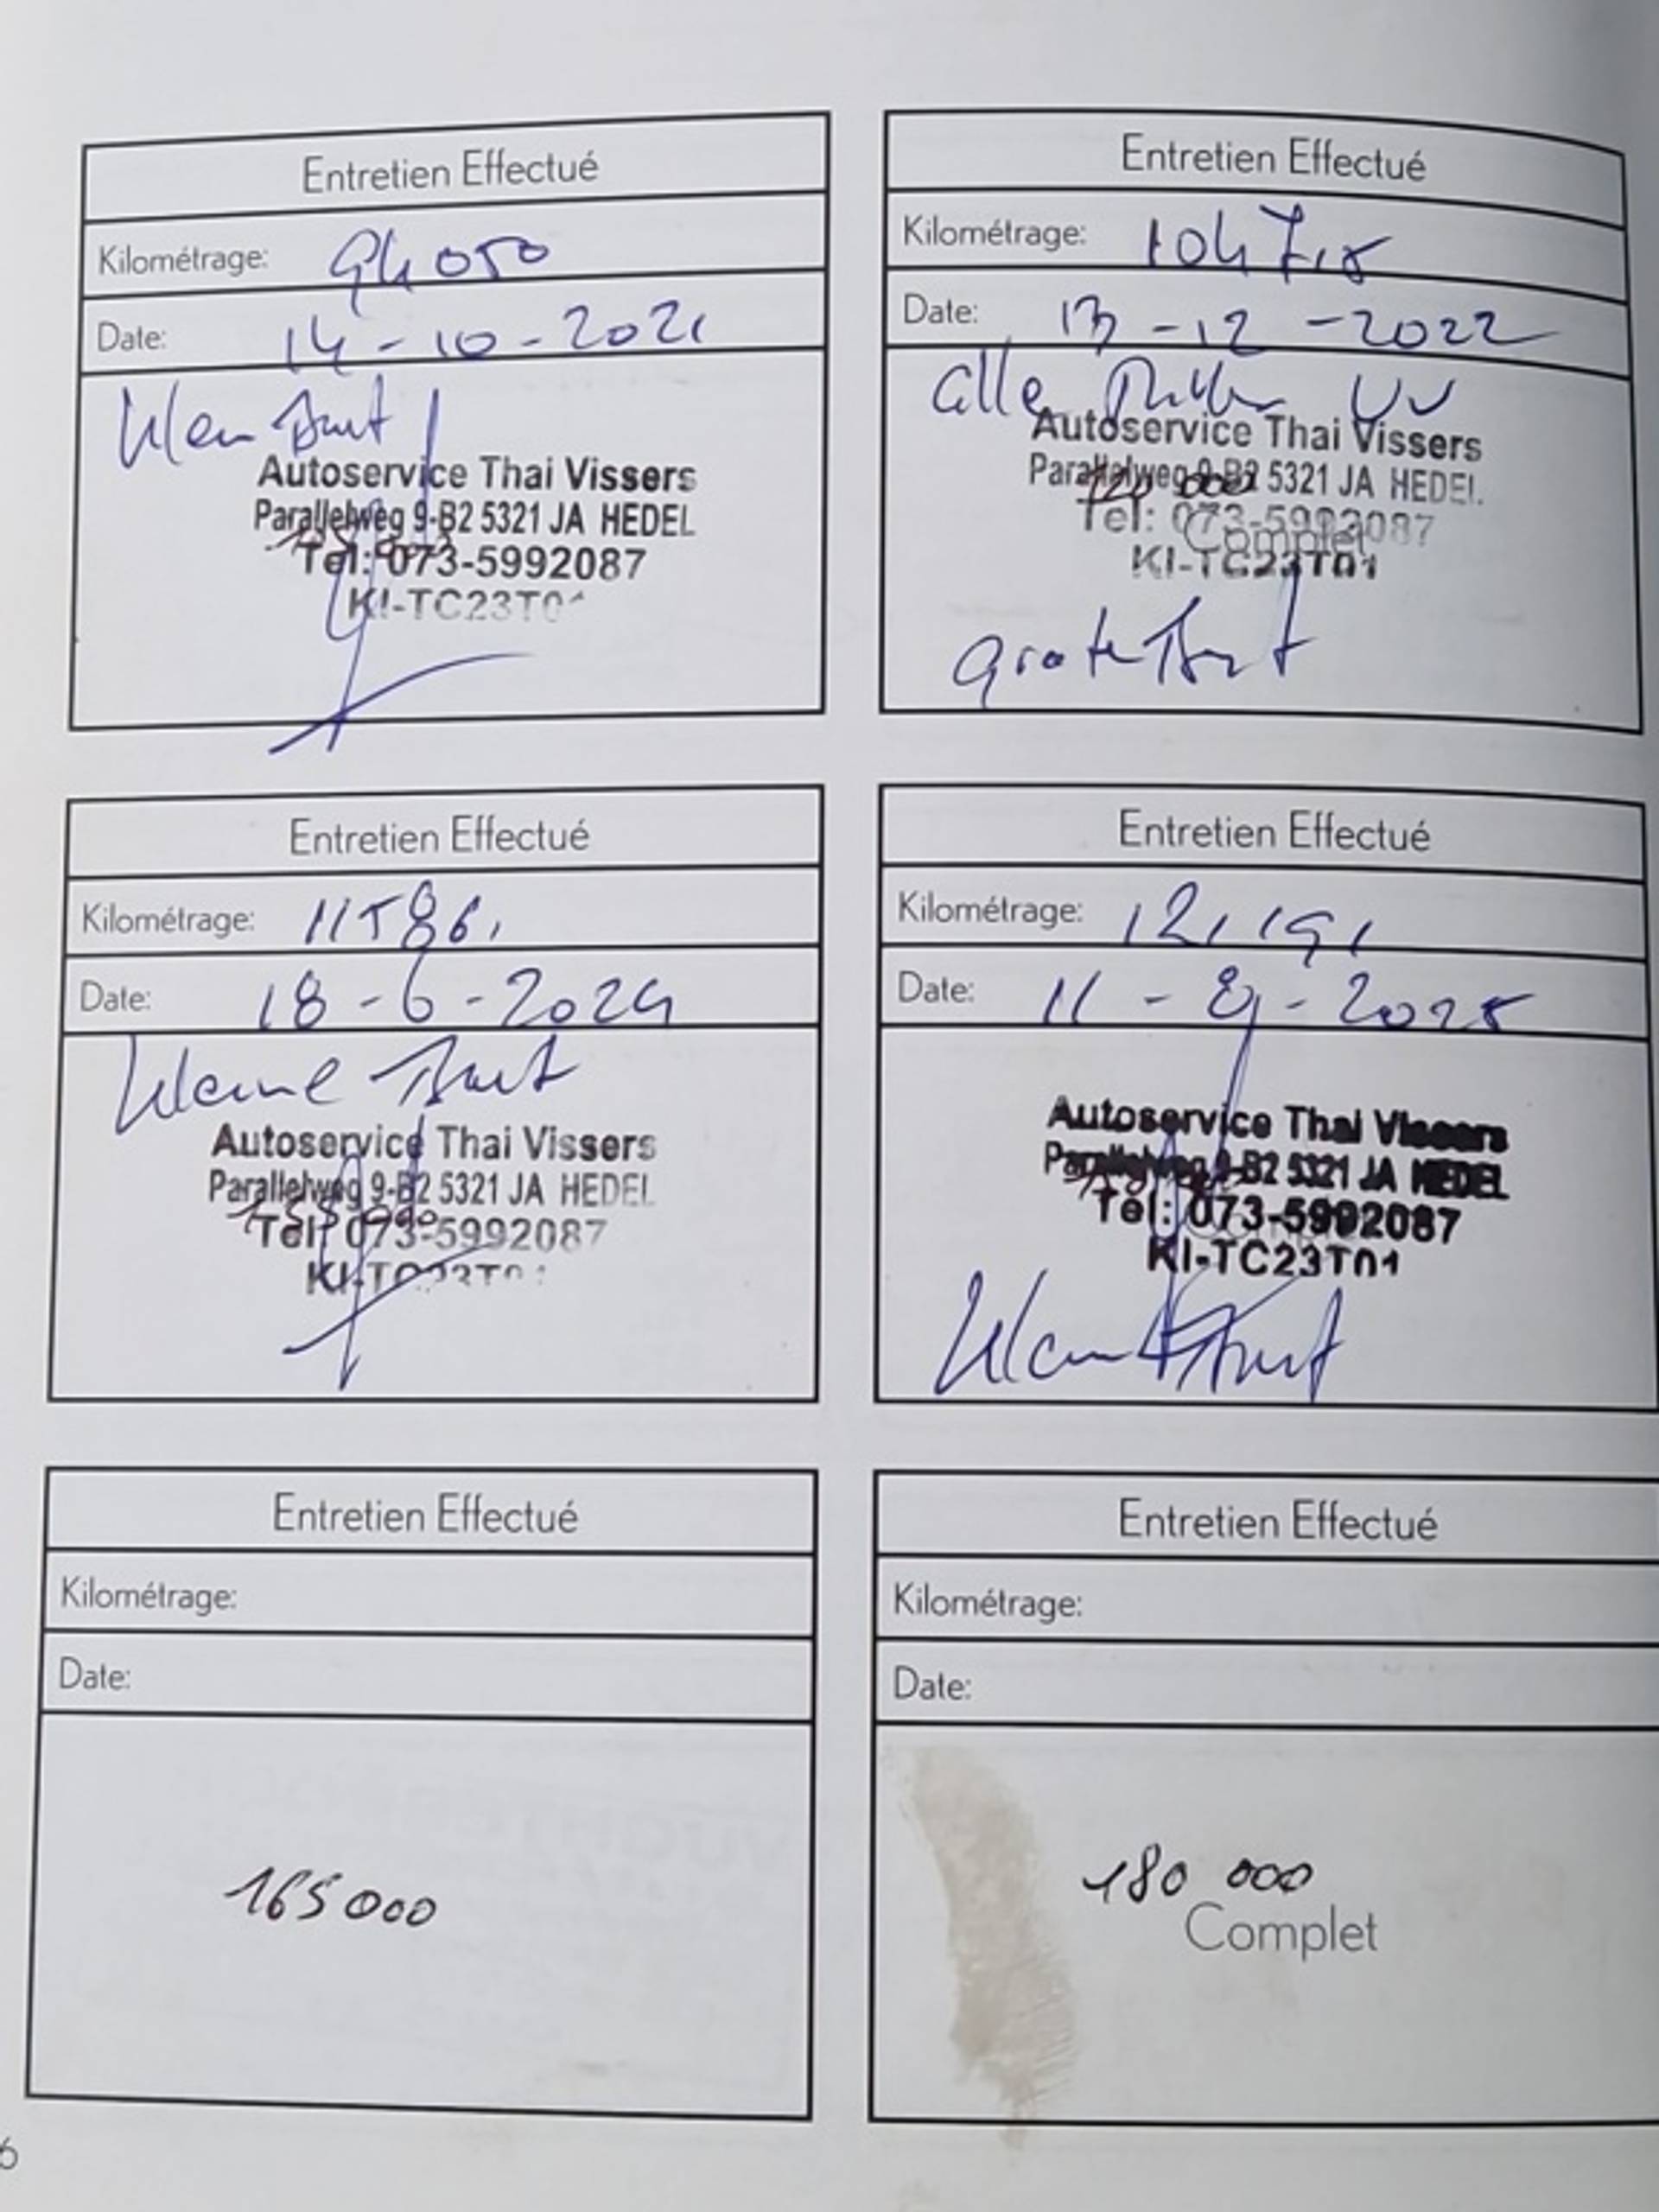 Entretien Effectué
Kilométrage: 94050
Date: 14-10-2021
Klein Burt
Autoservice Thai Vissers
Parallelweg 9-B2 5321 JA HEDEL
Tel: 073-5992087
KI-TC23T01
Entretien Effectué
Kilométrage: 104715
Date: 13-12-2022
alle
Autoservice Thai Vissers
Parallelweg 9-B2 5321 JA HEDEL
120 000
Tel: 073-5992087
Complet
KI-TC23T01
grote Burt
Entretien Effectué
Kilométrage: 115861
Date: 18-6-2024
kleine Burt
Autoservice Thai Vissers
Parallelweg 9-B2 5321 JA HEDEL
Tel: 073-5992087
KI-TC23T01
Entretien Effectué
Kilométrage: 121191
Date: 11-8-2025
Autoservice Thai Vissers
Parallelweg 9-B2 5321 JA HEDEL
Tel: 073-5992087
KI-TC23T01
Entretien Effectué
Kilométrage:
Date:
165 000
Entretien Effectué
Kilométrage:
Date:
180 000
Complet
6